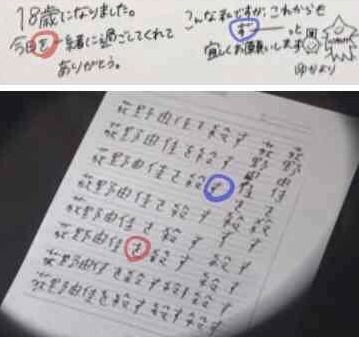 18歳になりました。
今日を一緒に過ごしてくれて
ありがとう。
こんな私ですが、これからも
ずーっと
宜しくお願いします
ゆかより
荻野由佳を殺す
荻野由佳を殺す
荻野由佳を殺す
荻野由佳を殺す
荻野由佳を殺す
荻野由佳を殺す殺す殺す
荻野由佳を殺す殺す殺す